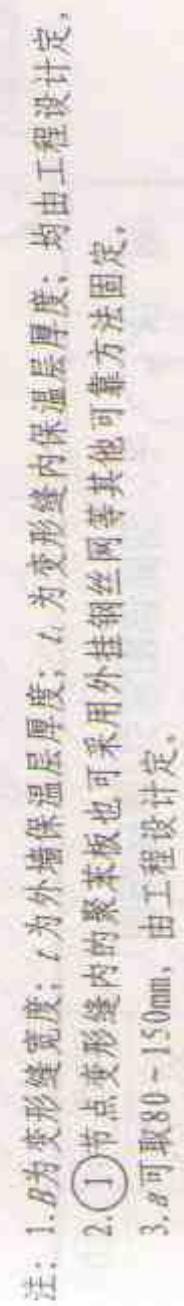 注: 1.B为变形缝宽度; t为外墙保温层厚度; t₁为变形缝内保温层厚度; 均由工程设计定。
2.①节点变形缝内的聚苯板也可采用外挂钢丝网等其他可靠方法固定。
3.a可取80~150mm, 由工程设计定。